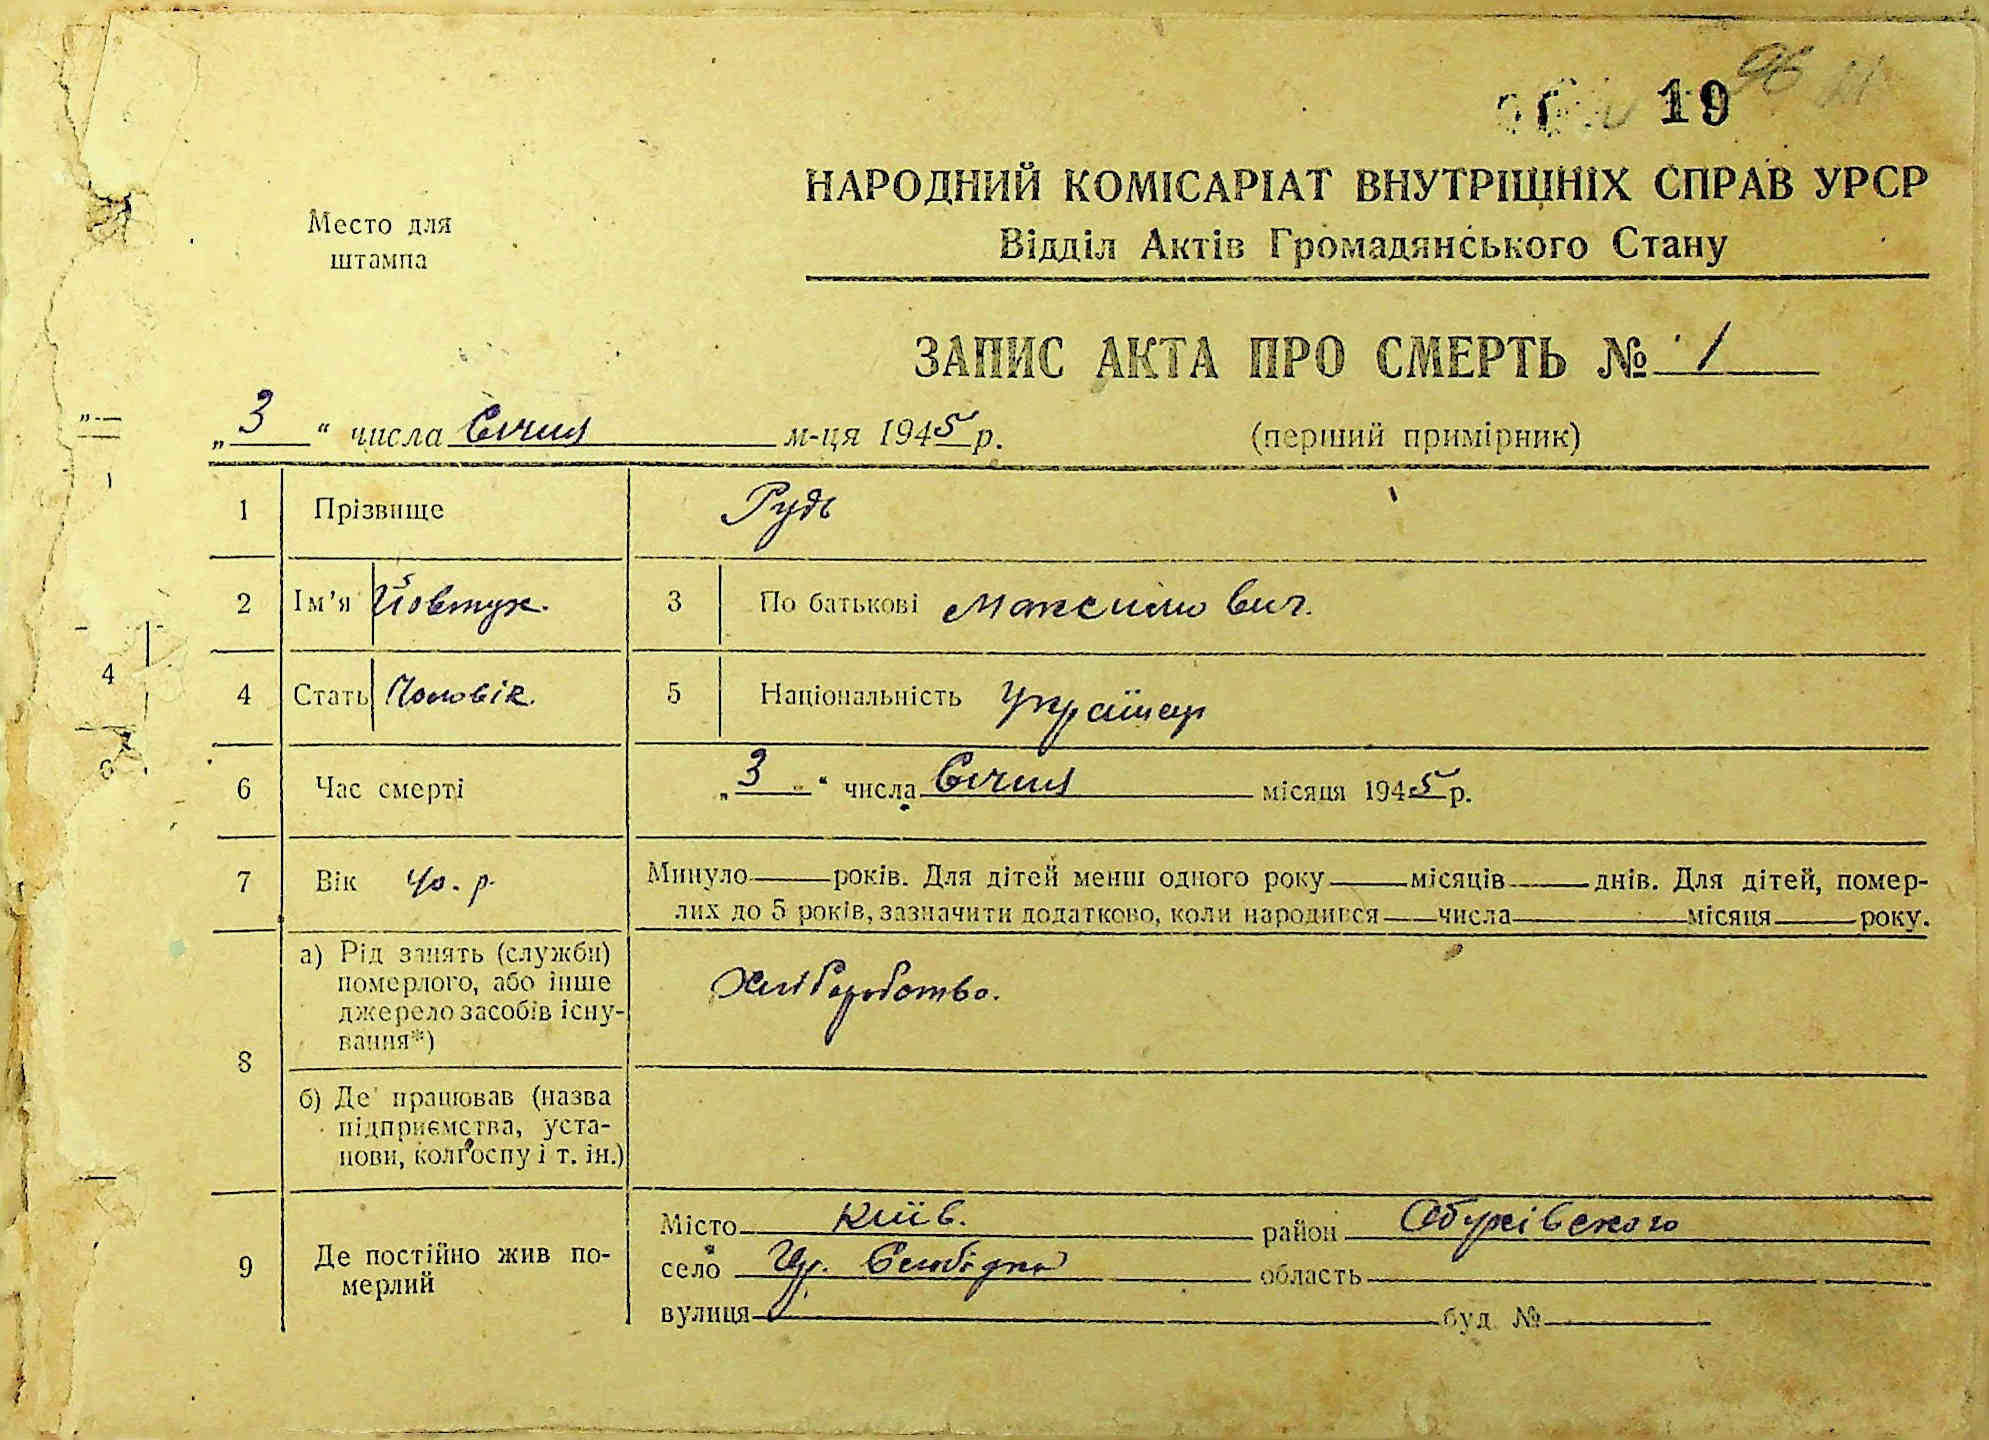 19 96
НАРОДНИЙ КОМІСАРІАТ ВНУТРІШНІХ СПРАВ УРСР
Відділ Актів Громадянського Стану
Место для
штампа
ЗАПИС АКТА ПРО СМЕРТЬ № 1
„3“ числа Січня м-ця 1945 р. (перший примірник)
1 Прізвище Рудь
2 Ім'я Йовтух. 3 По батькові Максимович.
4 Стать Чоловік. 5 Національність Українец
6 Час смерті „3“ числа Січня місяця 1945 р.
7 Вік 40. р. Минуло років. Для дітей менш одного року місяців днів. Для дітей, помер-
лих до 5 років, зазначити додатково, коли народився числа місяця року.
8 а) Рід занять (служби)
померлого, або інше
джерело засобів існу-
вання*)
Хліборобство.
б) Де працював (назва
підприємства, уста-
нови, колгоспу і т. ін.)
9 Де постійно жив по-
мерлий
Місто Київ. район Обухівского
село Слобідка область
вулиця буд. №